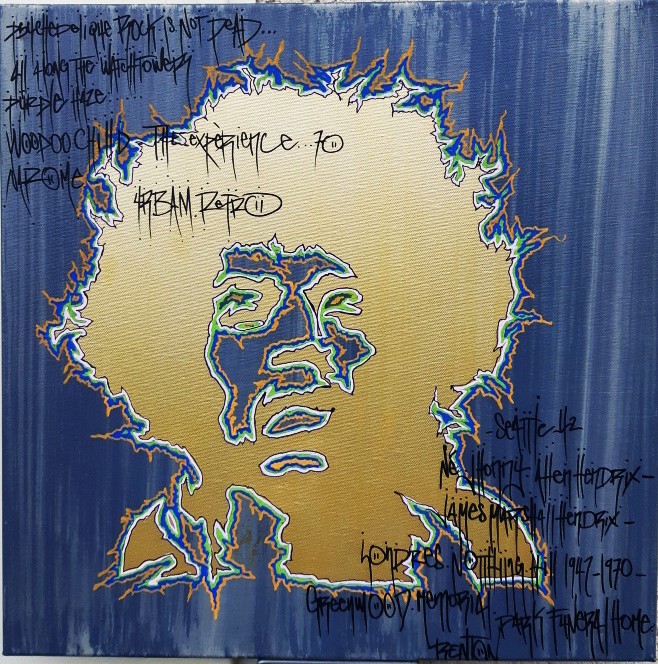 PSYCHEDELIQUE ROCK IS NOT DEAD...
All Along The WATCHTOWERS
PURPLE HAZE.....
WOODOO CHILD - THE EXPERIENCE...70
URBAM. RETRO
SEATTLE 42
Ne JHONNY Allen HENDRIX -
JAMES MARSHALL HENDRIX -
LONDRES. NOTTHING Hill 1942-1970-
GREENWOOD MEMORIAL PARK FUNERAL HOME
RENTON